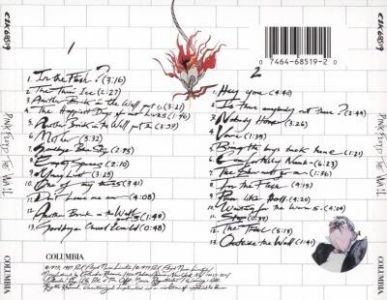 CZK 68519
PINK FLOYD THE WALL
COLUMBIA
1
1. In the Flesh? (3:16)
2. The Thin Ice (2:27)
3. Another Brick in the Wall part 1 (3:21)
4. The Happiest Days of our Lives (1:46)
5. Another Brick in the Wall part 2 (3:59)
6. Mother
7. Goodbye Blue Sky (2:45)
8. Empty Spaces (2:10)
9. Young Lust (3:25)
10. One of my turns (3:41)
11. Don't Leave me now (4:08)
12. Another Brick in the Wall (1:48)
13. Goodbye Cruel World (0:48)
0 7464-68519-2 0
2
1. Hey you (4:40)
2. Is there anybody out there? (2:44)
3. Nobody Home (3:26)
4. Vera (1:35)
5. Bring the boys back home (1:21)
6. Comfortably Numb (6:23)
7. The Show must go on (1:36)
8. In the Flesh (4:15)
9. Run like Hell (4:20)
10. Waiting for the worms
11. Stop
12. The Trial
13. Outside the Wall (1:41)
COLUMBIA
CZK 68519
PINK FLOYD THE WALL
COLUMBIA